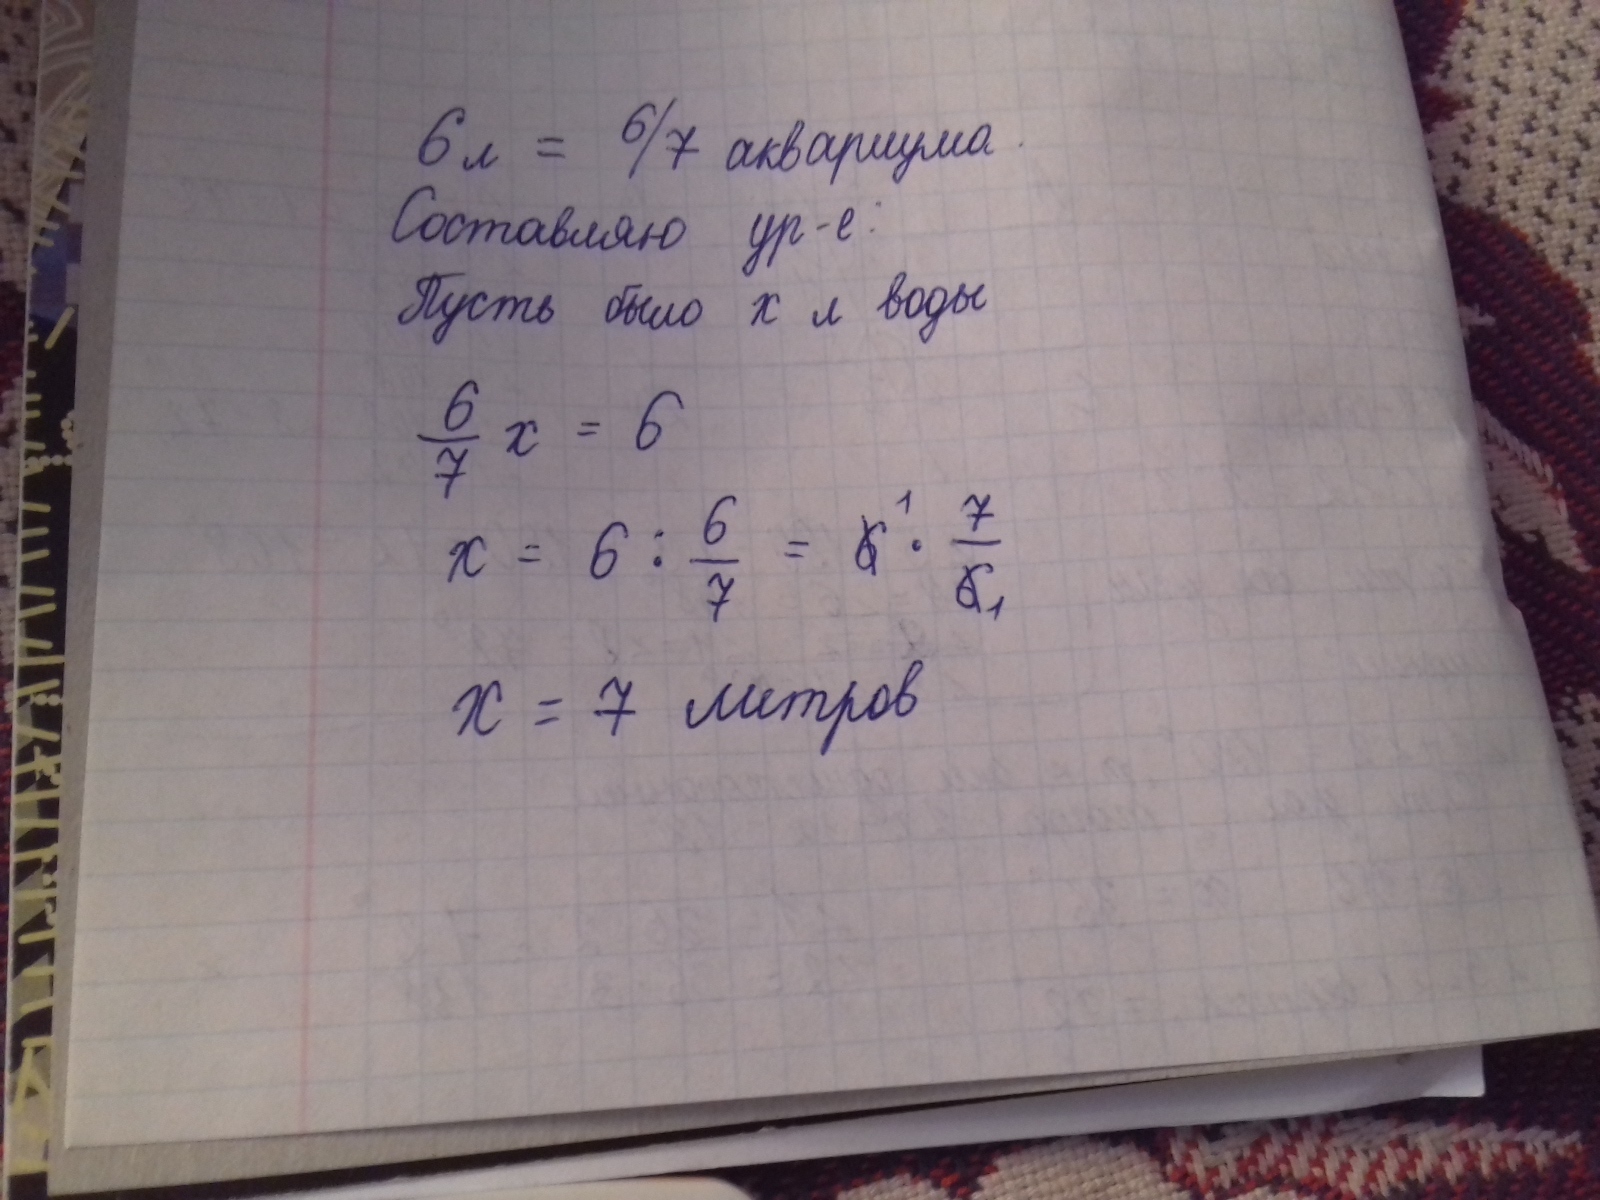 6 л = 6/7 аквариума.
Составляю ур-е:
Пусть было х л воды
6/7 х = 6
х = 6 : 6/7 = 6 1 · 7/6 1
х = 7 литров